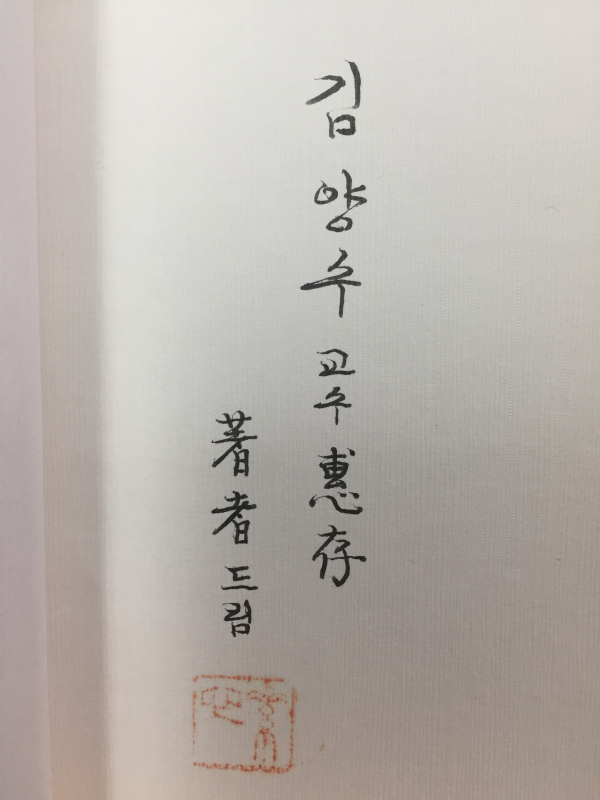 김양수 교수 惠存
著者 드림